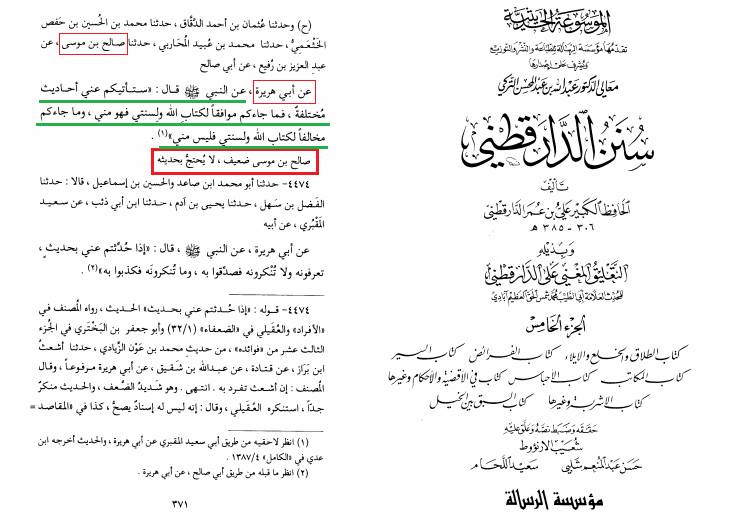 الموسوعة الحديثية
تقدمها مؤسسة الرسالة للطباعة والنشر والتوزيع
ويشرف على إصدارها
معالي الدكتور عبد الله بن عبد المحسن التركي
سنن الدارقطني
تأليف
الحافظ الكبير علي بن عمر الدارقطني
٣٠٦ - ٣٨٥ هـ
وبذيله
التعليق المغني على الدارقطني
للمحدث العلامة أبي الطيب محمد شمس الحق العظيم آبادي
الجزء الخامس
كتاب الطلاق والخلع والإيلاء، كتاب الفرائض، كتاب السير
كتاب المكاتب، كتاب الأحباس، كتاب في الأقضية والأحكام وغيرها
كتاب الأشربة وغيرها، كتاب السبق بين الخيل
حققه وضبط نصه وعلق عليه
شعيب الارنؤوط
حسن عبد المنعم شلبي سعيد اللحام
مؤسسة الرسالة
(ح) وحدثنا عُثمان بن أحمد الدَّقَّاق، حدثنا محمد بن الحُسين بن حَفص
الخَثْعَميُّ، حدثنا محمد بن عُبيد المُحاربي، حدثنا صالح بن موسى، عن
عبد العزيز بن رُفيع، عن أبي صالح
عن أبي هريرة، عن النبي ﷺ قال: «سـتـأتيكم عني أحاديث
مُختلفةٌ، فما جاءكم موافقاً لكتاب الله ولسنتي فهو مني، وما جاءكم
مخالفاً لكتاب الله ولسنتي فليس مني»(١).
صالح بن موسى ضعيف، لا يُحتجُّ بحديثه
٤٤٧٤- حدثنا أبو محمد ابن صاعد والحسين بن إسماعيل، قالا: حدثنا
الفَضل بن سَهل، حدثنا يحيى بن آدم، حدثنا ابن أبي ذئب، عن سـعيـد
المَقْبُري، عن أبيه
عن أبي هريرة، عن النبي ﷺ، قال: «إذا حُدِّثتم عني بحديثٍ،
تعرفونه ولا تُنْكرونه فصدِّقوا به، وما تُنكرونَه فكذبوا به»(٢).
٤٤٧٤- قـولـه: «إذا حُـدثـتم عني بـحديث» الحـديث، رواه المُصنف في
«الأفراد» والعُقَيلي في «الضعفاء» (٣٢/١) وأبو جعفر بن البَخْتَري في الجُزء
الثالث عشر من «فوائده»، من حديث محمد بن عَوْن الزِّيادي، حدثنا أشعثُ
ابن بَرَاز، عن قتادة، عن عبدالله بن شَقيق، عن أبي هريرة مـرفـوعـاً، وقال
المُصنف: إن أشعث تفرد به. انتهى. وهو شديدُ الضَّعف، والحديث منكرٌ
جدّاً، استنكره العُقَيلي، وقال: إنه ليس له إسنادٌ يصحُّ، كذا في «المقاصد =
(١) انظر لاحقيه من طريق أبي سعيد المقبري عن أبي هريرة، والحديث أخرجه ابن
عدي في «الكامل» ١٣٨٧/٤.
(٢) انظر ما قبله من طريق أبي صالح، عن أبي هريرة.
٣٧١